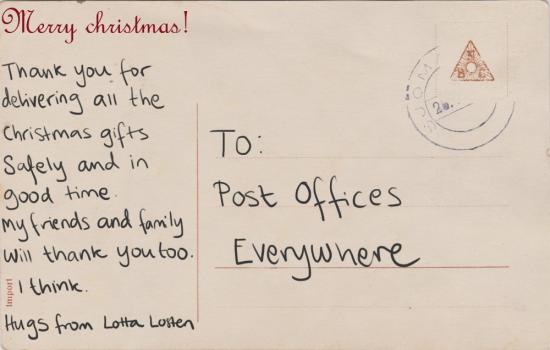 Merry christmas!
Thank you for
delivering all the
Christmas gifts
Safely and in
good time.
My friends and family
Will thank you too.
I think.
Hugs from Lotta Losten
Import
To:
Post Offices
Everywhere
SUOM